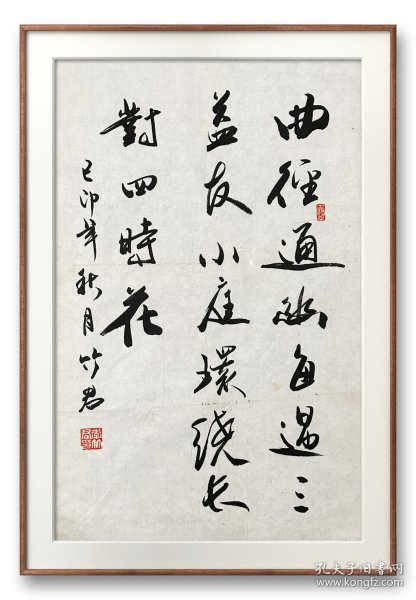 曲徑通幽每過三
益友小庭環繞長
對四時花
己卯年秋月竹君
孔夫子旧书网
www.kongfz.com